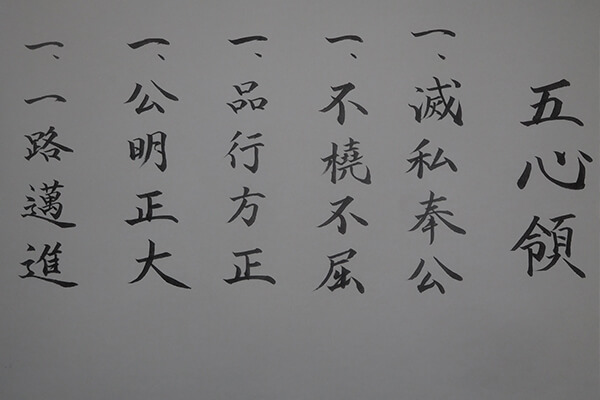 五心領
一、滅私奉公
一、不橈不屈
一、品行方正
一、公明正大
一、一路邁進